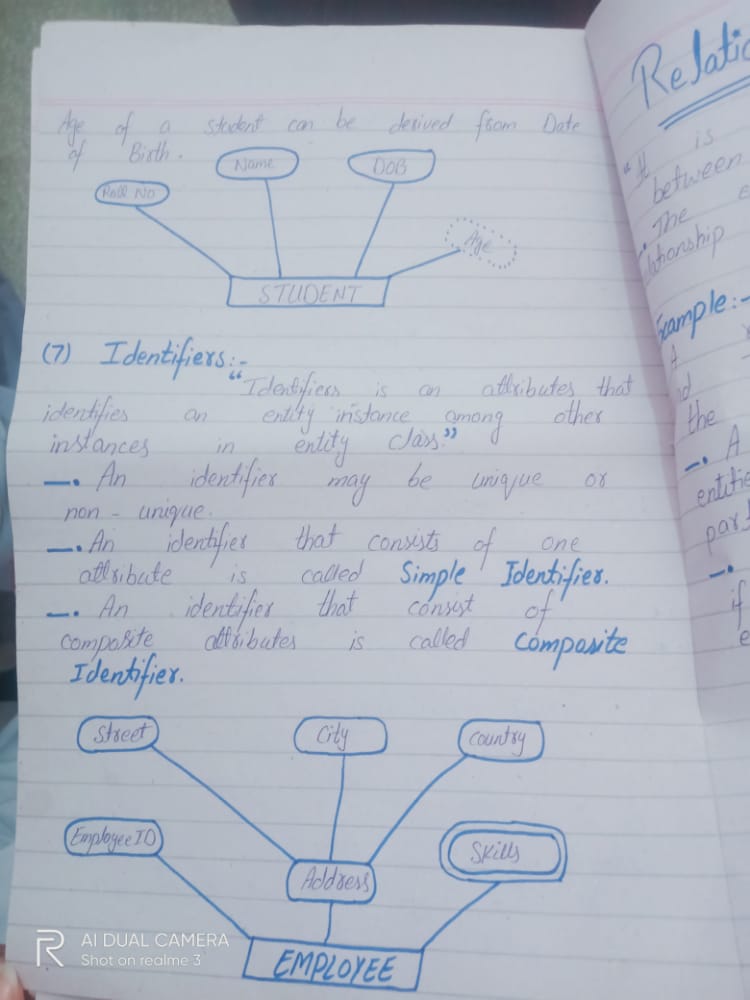 Age of a student can be derived from Date
of Birth.
Roll No
Name
DOB
Age
STUDENT
(7) Identifiers:-
"Identifiers is an attributes that
identifies an entity instance among other
instances in entity class."
—. An identifier may be unique or
non-unique.
—. An identifier that consists of one
attribute is called Simple Identifier.
—. An identifier that consist of
composite attributes is called Composite
Identifier.
Street
City
Country
EmployeeID
Address
Skills
EMPLOYEE
R
AI DUAL CAMERA
Shot on realme 3
"It is
between
. The
Example:-
A
the
—. A
—.
if